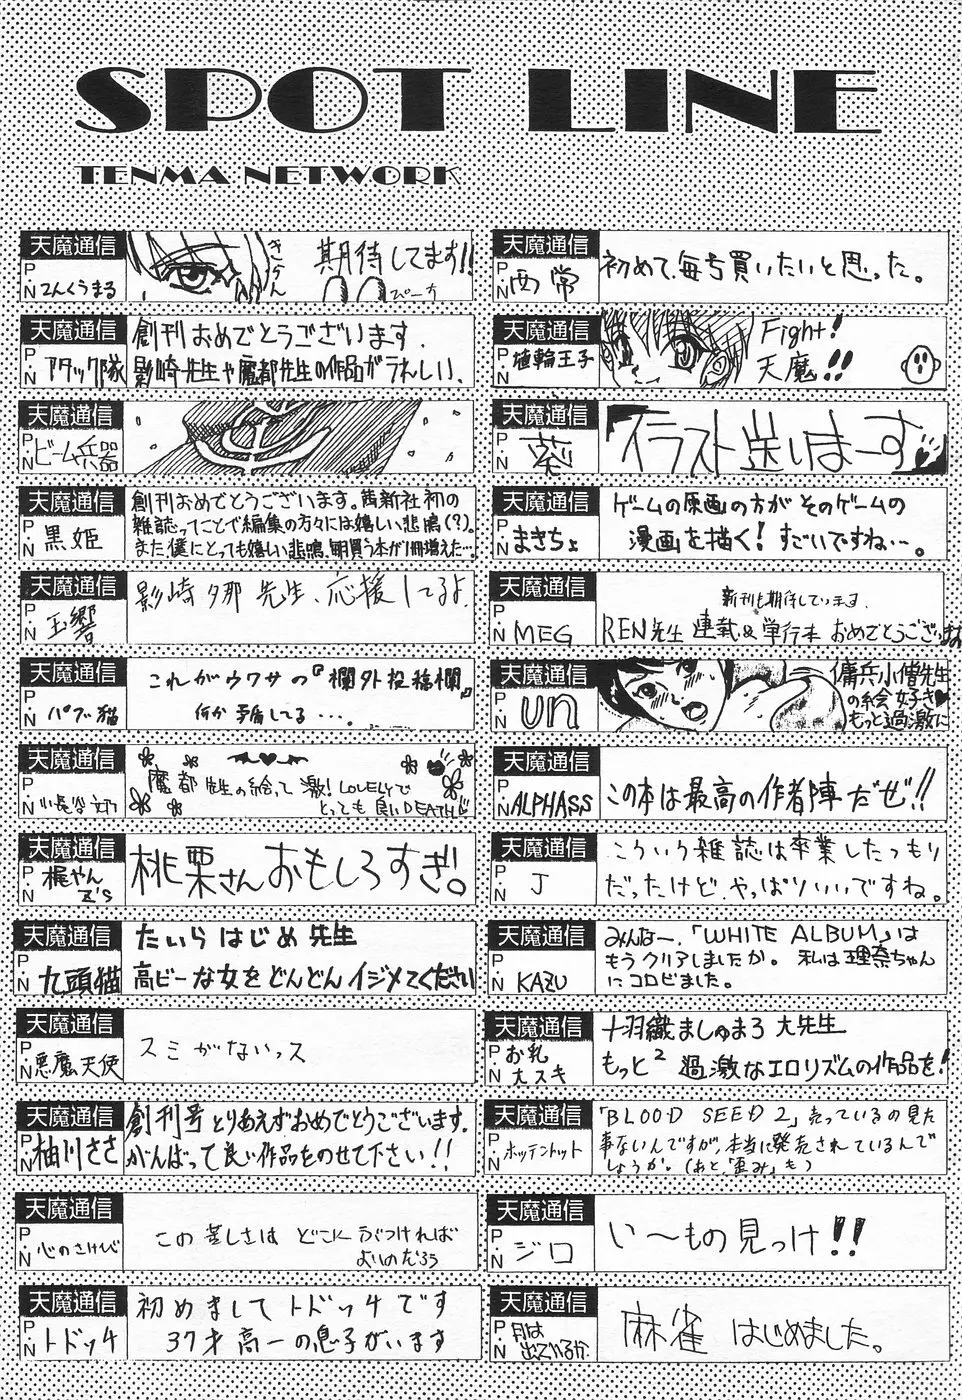 SPOT LINE
TENMA NETWORK
天魔通信
P・N てんくうまる
きかん
期待してます!!
ぴーち
天魔通信
P・N アタック隊
創刊おめでとうございます.
影崎先生や魔都先生の作品がうれしい.
天魔通信
P・N ビーム兵器
天魔通信
P・N 黒姫
創刊おめでとうございます。茜新社初の
雑誌ってことで編集の方々には嬉しい悲鳴(?)。
また僕にとっても嬉しい悲鳴、毎月買う本が1冊増えた…
天魔通信
P・N 玉響
影崎夕那先生、応援してるよ.
天魔通信
P・N パブ猫
これがウワサの『欄外投稿欄』
何か矛盾してる….
天魔通信
P・N 小長谷
魔都先生の絵って激!LOVELYで
とっても良いDEATH!!
天魔通信
P・N 梶やんZ's
桃栗さんおもしろすぎ。
天魔通信
P・N 九頭猫
たいらはじめ先生
高ビーな女をどんどんイジメてください
天魔通信
P・N 悪魔天使
スミがないっス
天魔通信
P・N 柚川ささ
創刊号とりあえずおめでとうございます.
がんばって良い作品をのせて下さい!!
天魔通信
P・N 心のさけび
この苦しさはどこにぶつければ
よいのだろう
天魔通信
P・N トドッチ
初めましてトドッチです
37才高一の息子がいます
天魔通信
P・N 西常
初めて、毎号買いたいと思った。
天魔通信
P・N 埴輪王子
Fight!
天魔!!
天魔通信
P・N 葵
イラスト送りまーす
天魔通信
P・N まきちょ
ゲームの原画の方がそのゲームの
漫画を描く!すごいですね…。
天魔通信
P・N MEG
新刊も期待しています.
REN先生 連載&単行本 おめでとうございます
天魔通信
P・N un
傭兵小僧先生
の絵好き♥
もっと過激に
天魔通信
P・N ALPHASS
この本は最高の作者陣だぜ!!
天魔通信
P・N J
こういう雑誌は卒業したつもり
だったけど、やっぱりいいですね。
天魔通信
P・N KAZU
みんなー、「WHITE ALBUM」は
もうクリアしましたか。私は理奈ちゃん
にコロビました。
天魔通信
P・N お乳大スキ
十羽織ましゅまろ 大先生
もっと² 過激なエロリズムの作品を!
天魔通信
P・N ホッテントット
「BLOOD SEED 2」売っているの見た
事ないんですが、本当に発売されているんで
しょうか。(あと「歪み」も)
天魔通信
P・N ジロ
い〜もの見っけ!!
天魔通信
P・N 月は出ているか
麻雀はじめました。